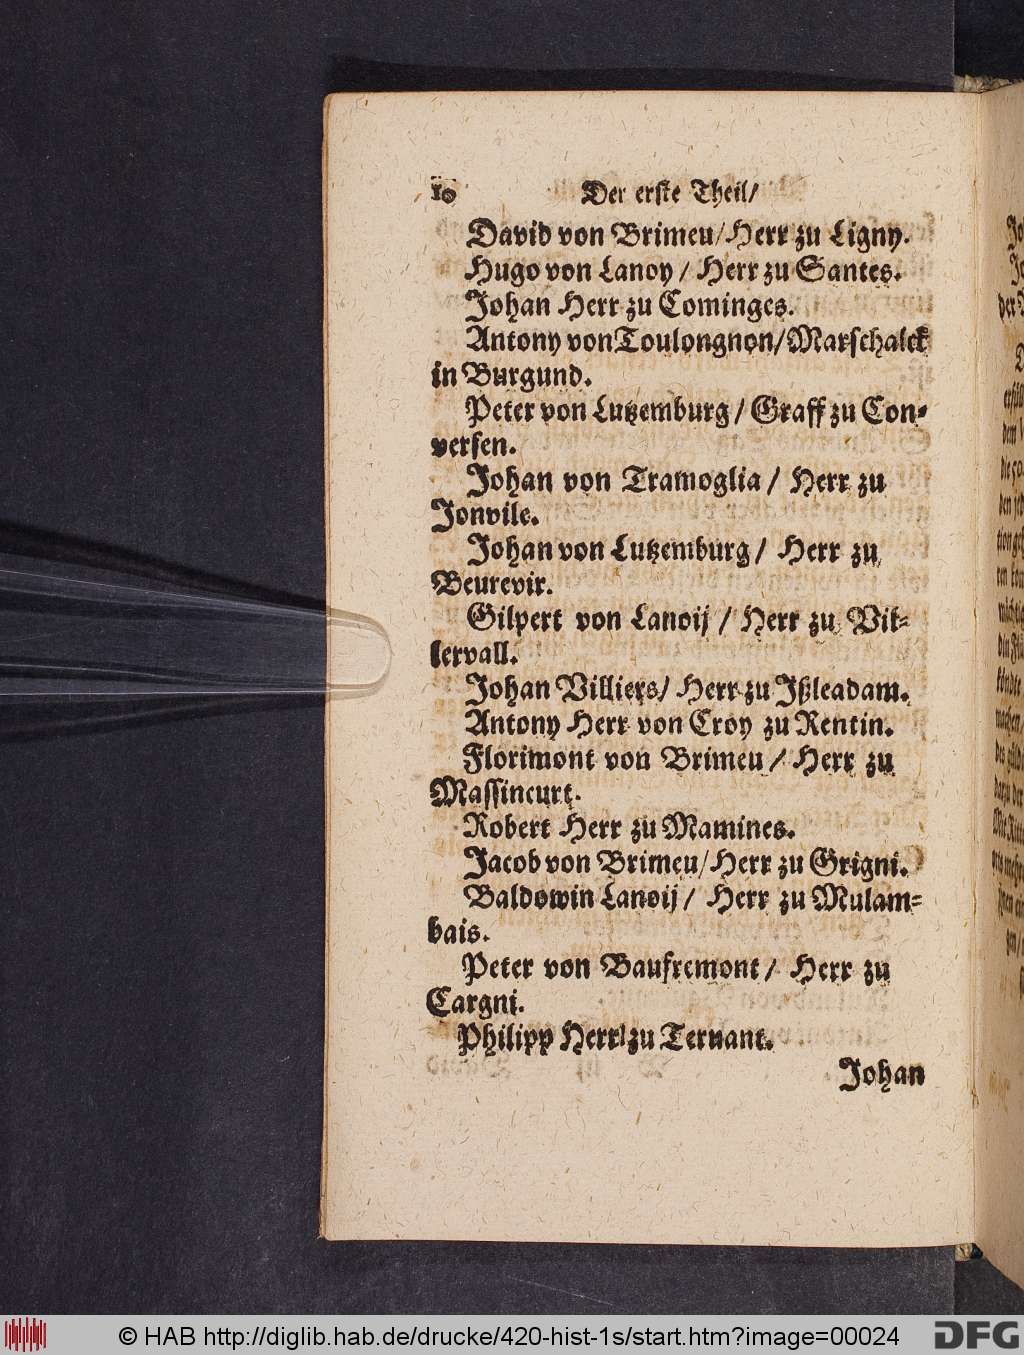 10 Der erste Theil/
David von Brimeu/Herr zu Ligny.
Hugo von Lanoy / Herr zu Santes.
Johan Herr zu Cominges.
Antony von Toulongnon/Marschalck
in Burgund.
Peter von Lutzemburg / Graff zu Con-
versen.
Johan von Tramoglia / Herr zu
Jonvile.
Johan von Lutzemburg / Herr zu
Beurevir.
Gilpert von Lanoij / Herr zu Vil-
lervall.
Johan Villiers/ Herr zu Ißleadam.
Antony Herr von Croy zu Rentin.
Florimont von Brimeu / Herr zu
Massincurt.
Robert Herr zu Mamines.
Jacob von Brimeu/Herr zu Grigni.
Baldowin Lanoij / Herr zu Mulam-
bais.
Peter von Baufremont / Herr zu
Cargni.
Philipp Herr zu Ternant.
Johan
© HAB http://diglib.hab.de/drucke/420-hist-1s/start.htm?image=00024
DFG